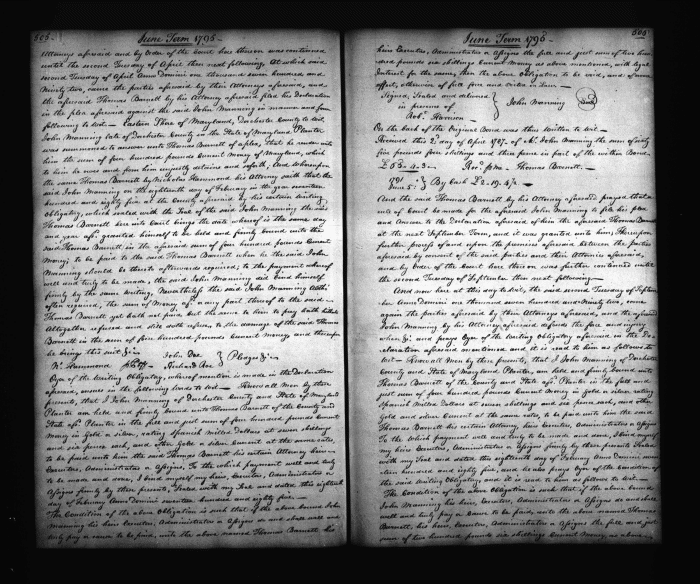 June Term 1795
Attornies aforesaid and by order of the Court here thereon was continued
until the second Tuesday of April then next following. At which said
second Tuesday of April Anno Domini one thousand seven hundred and
Ninety two, came the parties aforesaid by their Attornies aforesaid, and
the aforesaid Thomas Barnett by his Attorney aforesaid filed his Declaration
in the plea aforesaid against the said John Manning in manner and form
following to wit — Eastern Shore of Maryland, Dorchester County to wit,
John Manning late of Dorchester County in the State of Maryland Planter
was summoned to answer unto Thomas Barnett of a plea, that he render unto
him the sum of four hundred pounds Current Money of Maryland, which
to him he owes and from him unjustly detains and so forth, And whereupon
the same Thomas Barnett by Nicholas Hammond his Attorney saith that the
said John Manning on the eighteenth day of February in the year seventeen
hundred and eighty five at the County aforesaid by his certain writing
Obligatory, which sealed with the Seal of the said John Manning the said
Thomas Barnett here into Court brings the date whereof is the same day
and year afsd. granted himself to be held and firmly bound unto the
said Thomas Barnett in the aforesaid sum of four hundred pounds Current
Money; to be paid to the said Thomas Barnett when he the said John
Manning should be thereto afterwards required; to the payment whereof
well and truly to be made, the said John Manning did bind himself
firmly by the same writing, Nevertheless the said John Manning altho'
often required, the sum of Money afsd. or any part thereof to the said
Thomas Barnett yet hath not paid but the same to him to pay hath hitherto
Altogether refused and still doth refuse, to the damage of the said Thomas
Barnett in the sum of four hundred pounds Current Money and thereupon
he brings this suit &c.
Ns. Hammond John Doe
Richard Roe } Pledges &c.
Oyer of the Writing Obligatory, whereof mention is made in the Declaration
aforesaid, ensues in the following words to wit — Know all Men by these
presents, that I John Manning of Dorchester County and State of Maryland
Planter am held and firmly bound unto Thomas Barnett of the County and
State afsd. Planter in the full and just sum of four hundred pounds Current
Money in Gold or Silver, rating Spanish milled Dollars at seven shillings
and six pence each, and other gold & silver Current at the same rates,
to be paid unto him the said Thomas Barnett his certain Attorney heirs
Executors, Administrators or Assigns, To the which payment well and truly
to be made and done, I bind myself my heirs, Executors, Administrators or
Assigns firmly by these presents, Sealed with my Seal and dated this eighteenth
day of February Anno Domini seventeen hundred and eighty five
The Condition of the above Obligation is such that if the above bound John
Manning his heirs Executors, Administrators or Assigns do and shall well and
truly pay or cause to be paid, unto the above named Thomas Barnett his
June Term 1795
heirs Executors, Administrators or Assigns the full and just sum of two hun
dred pounds six shillings Current Money as above mentioned, with legal
Interest for the same, then the above Obligation to be void, and of none
effect, otherwise of full force and virtue in Law
Signed, Sealed and delivered
in presence of
Robt. Harrison
John Manning (Seal)
On the back of the Original Bond was thus written to wit —
Received this 2d. day of April 1787, of Mr. John Manning the sum of sixty
five pounds four shillings and three pence in part of the within Bond.
£65.4.3 Recd. pr. me Thomas Barnett.
1791
June 5 } By Cash £2.19.4½
And the said Thomas Barnett by his Attorney aforesaid prayed that
a rule of Court be made for the aforesaid John Manning to file his plea
and Answer to the Declaration aforesaid of him the aforesaid Thomas Barnett
at the next September Term, and it was granted unto him; Thereupon
further process of and upon the premises aforesaid between the parties
aforesaid by consent of the said parties and their Attornies aforesaid,
and by order of the Court here thereon was further continued until
the second Tuesday of September then next following
And now here at this day to wit, the said second Tuesday of Septem
ber Anno Domini one thousand seven hundred and Ninety two, come
again the parties aforesaid by their Attornies aforesaid, and the aforesaid
John Manning by his Attorney aforesaid defends the force and injury
when &c. and prays Oyer of the Writing Obligatory aforesaid in the De
claration aforesaid mentioned and it is read to him as follows to
wit — Know all Men by these presents, that I John Manning of Dorchester
County and State of Maryland Planter, am held and firmly bound unto
Thomas Barnett of the County and State afsd. Planter in the full and
just sum of four hundred pounds Current Money in Gold or Silver rating
Spanish milled Dollars at seven shillings and six pence each, and other
Gold and silver Current at the same rates, to be paid unto him the said
Thomas Barnett his certain Attorney, heirs Executors, Administrators or Assigns
To the which payment well and truly to be made and done, I bind myself
my heirs Executors, Administrators or Assigns firmly by these presents Sealed
with my Seal and dated this eighteenth day of February Anno Domini seven
teen hundred and eighty five, and he also prays Oyer of the Condition of
the said Writing Obligatory and it is read to him as follows to wit.
The Condition of the above Obligation is such that if the above bound
John Manning his heirs, Executors, Administrators or Assigns do and shall
well and truly pay or Cause to be paid, unto the above named Thomas
Barnett, his heirs, Executors, Administrators or Assigns the full and just
sum of two hundred pounds six shillings Current Money, as above